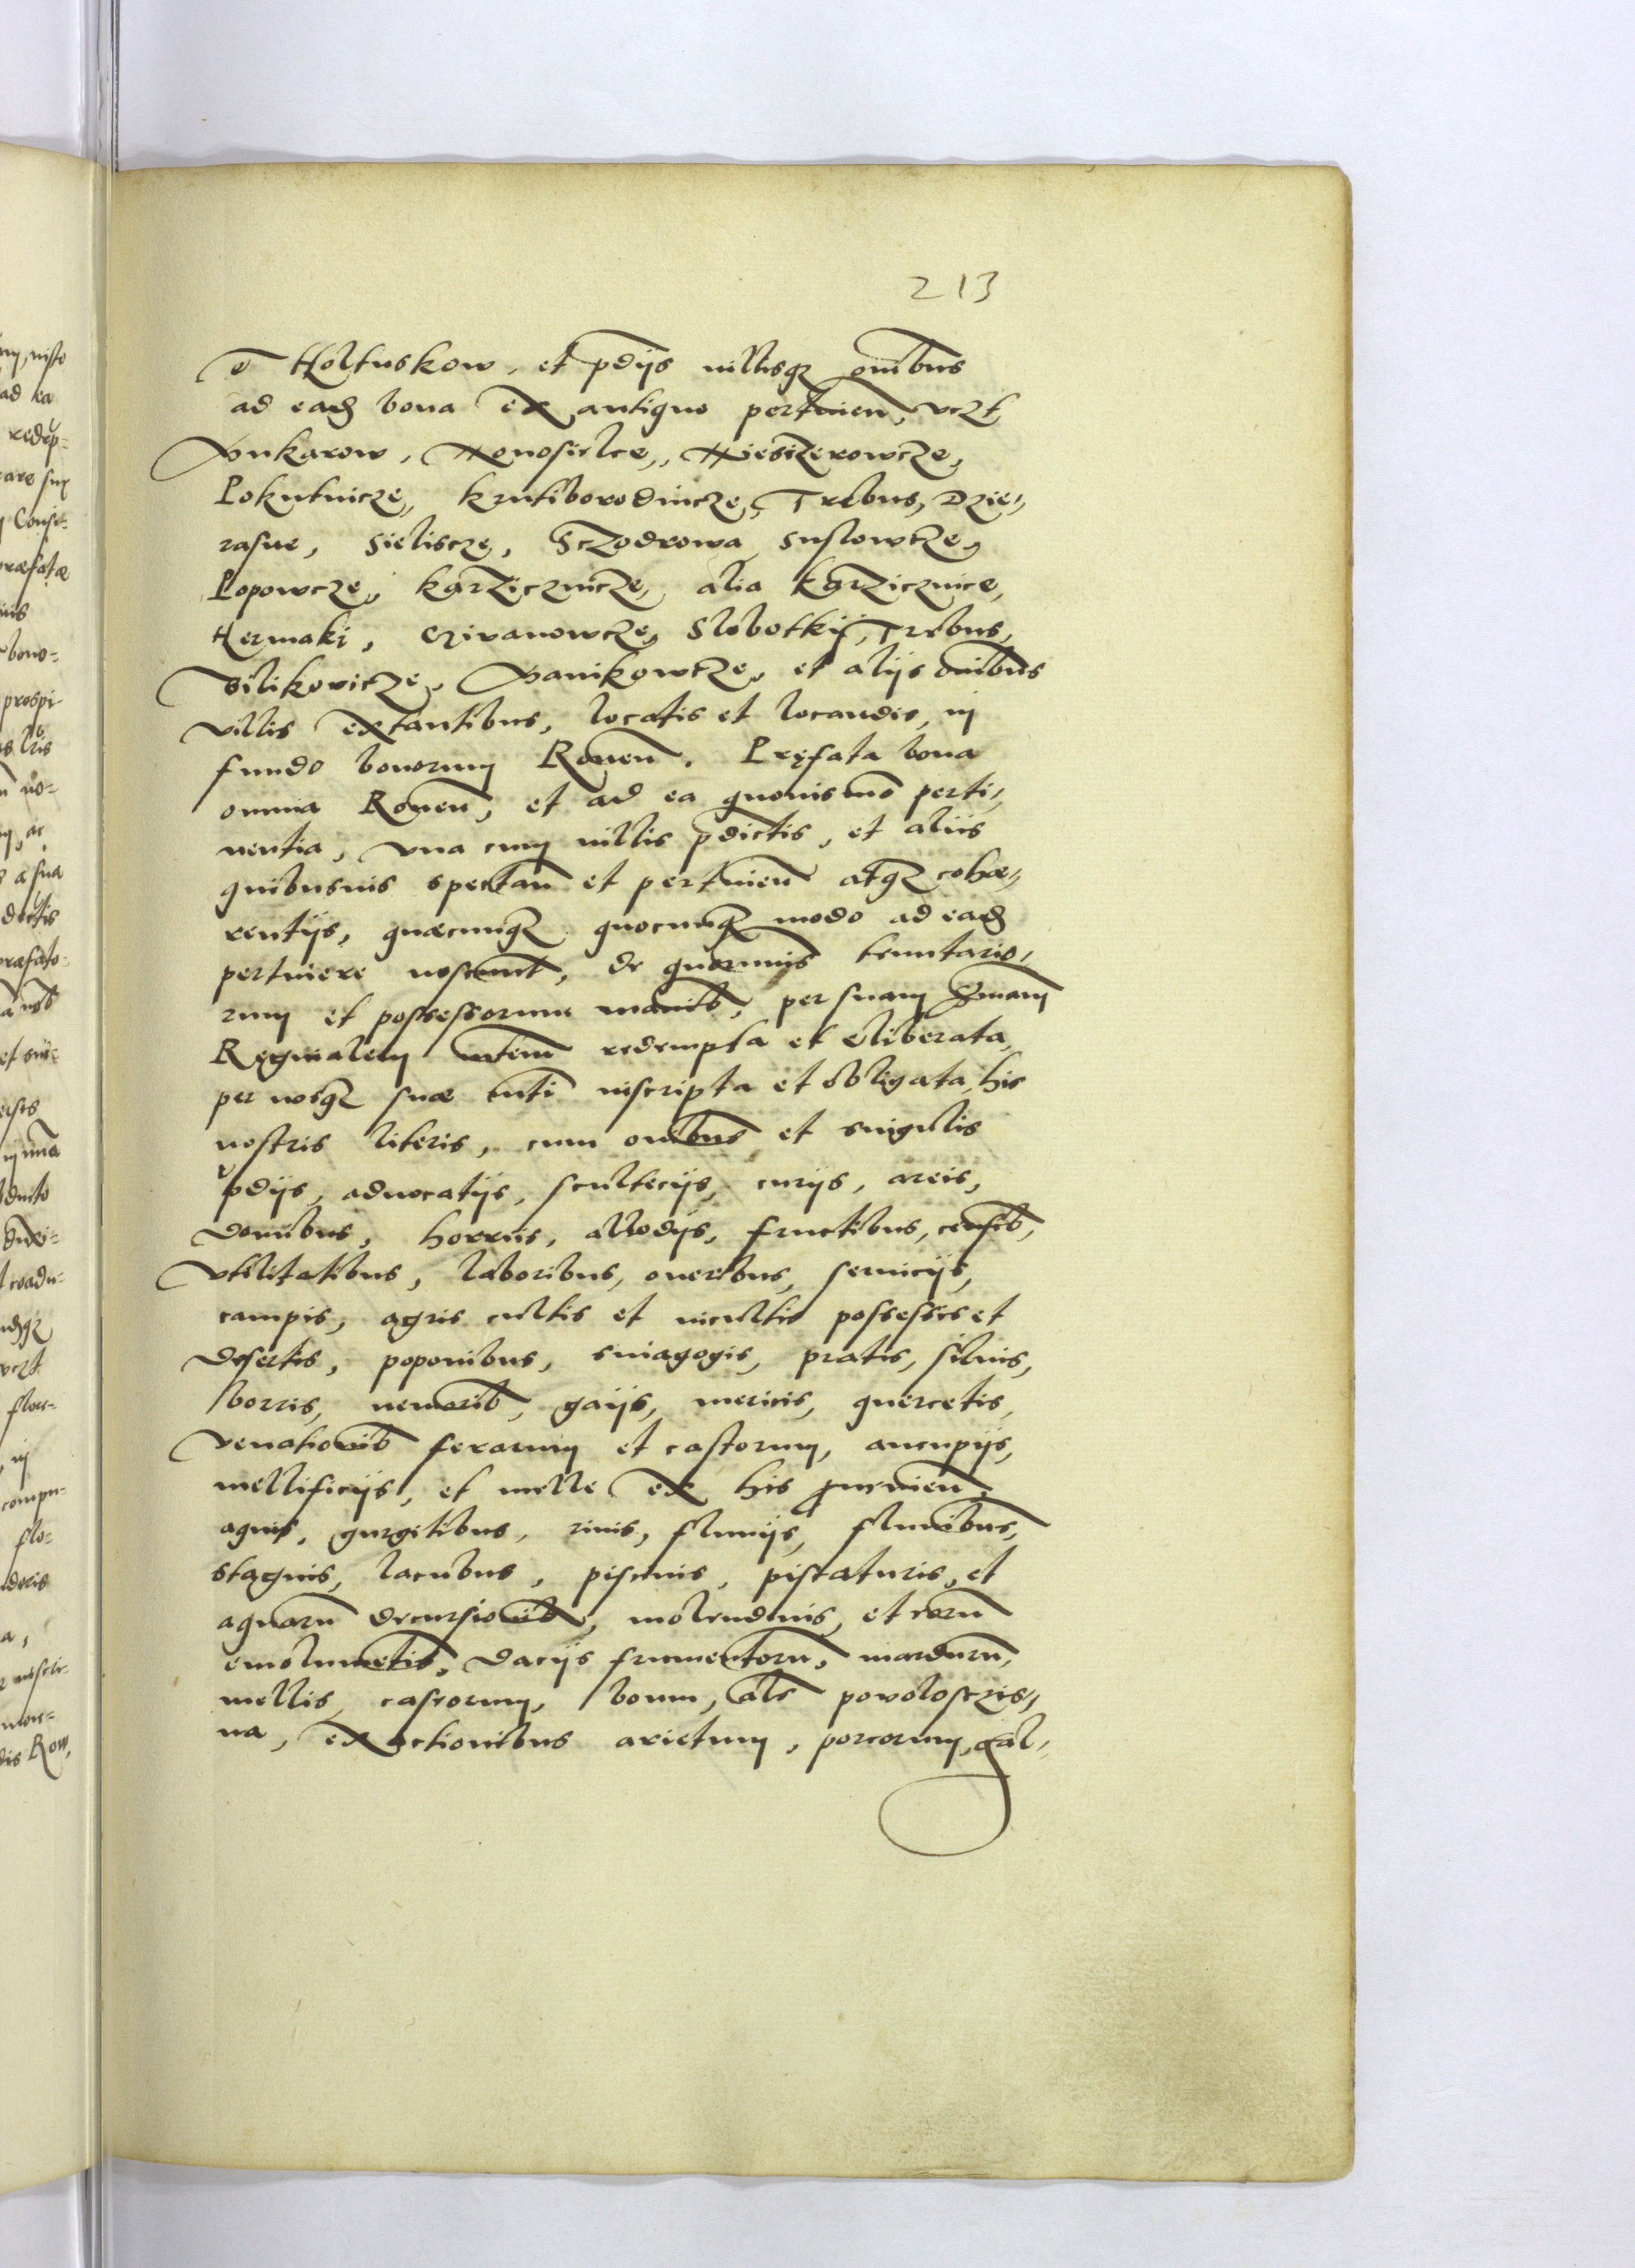 213
et Holtuskow, et pdijs villisqz omibus
ad eadem bona ex antiquo pertinen, vczt
Bukarow, Nonosielce, Niesterowcze,
Pokutnicze, Krutiborodincze, Trebus, Dzie-
rasne, Sieliscze, Sczodrowa Suslowcze,
Popowcze, Karzicznicze, alia Karzicznice,
Hermaki, Czivanowcze, Slobotkij, Trebus,
Silikovicze, Banikowcze, et alijs omibus
villis extantibus, locatis et locandis, in
fundo bonorum Rowen. Pręfata bona
omnia Rowen, et ad ea quouismo perti-
nentia, vna cum villis pdictis, et aliis
quibusuis spectan et pertinen atqz cohæ-
rentijs, quæcunqz quocunqz modo ad eadem
pertinere noscunt, de quorumuis tenutario-
rum et possessorum manib, per suam
Reginalem mtem redempta et eliberata,
per nosqz suæ mti inscripta et obligata his
nostris literis, cum omibus et singulis
pdijs, aduocatijs, scultecijs, curijs, areis,
domibus, horreis, allodijs, fructibus, censib,
vtilitatibus, laboribus, oneribus, seruicijs,
campis, agris cultis et incultis possessis et
desertis, poponibus, sinagogis, pratis, siluis,
borris, nemorib, gaijs, mericis, quercetis,
venationib ferarum et castorum, aucupijs,
mellificijs, et melle ex his prouenien,
aquis, gurgitibus, riuis, fluuijs, fluminibus,
stagnis, lacubus, piscinis, piscaturis, et
aquarum decursionib, molendinis, et eorum
emolumetis, dacijs frumentorum, mardurum,
mellis, castorum, boum, als powolosczis-
na, exactionibus arietum, porcorum, gal-